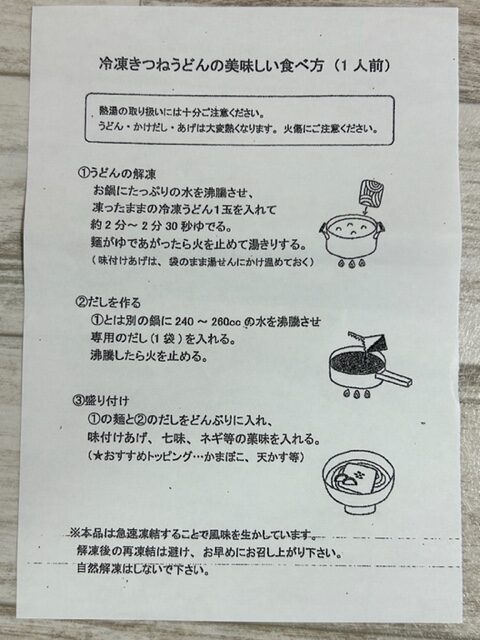 冷凍きつねうどんの美味しい食べ方（1人前）
熱湯の取り扱いには十分ご注意ください。
うどん・かけだし・あげは大変熱くなります。火傷にご注意ください。
①うどんの解凍
お鍋にたっぷりの水を沸騰させ、
凍ったままの冷凍うどん1玉を入れて
約2分～2分30秒ゆでる。
麺がゆであがったら火を止めて湯きりする。
（味付けあげは、袋のまま湯せんにかけ温めておく）
②だしを作る
①とは別の鍋に240～260ccの水を沸騰させ
専用のだし(1袋)を入れる。
沸騰したら火を止める。
③盛り付け
①の麺と②のだしをどんぶりに入れ、
味付けあげ、七味、ネギ等の薬味を入れる。
（★おすすめトッピング…かまぼこ、天かす等）
※本品は急速凍結することで風味を生かしています。
解凍後の再凍結は避け、お早めにお召し上がり下さい。
自然解凍はしないで下さい。